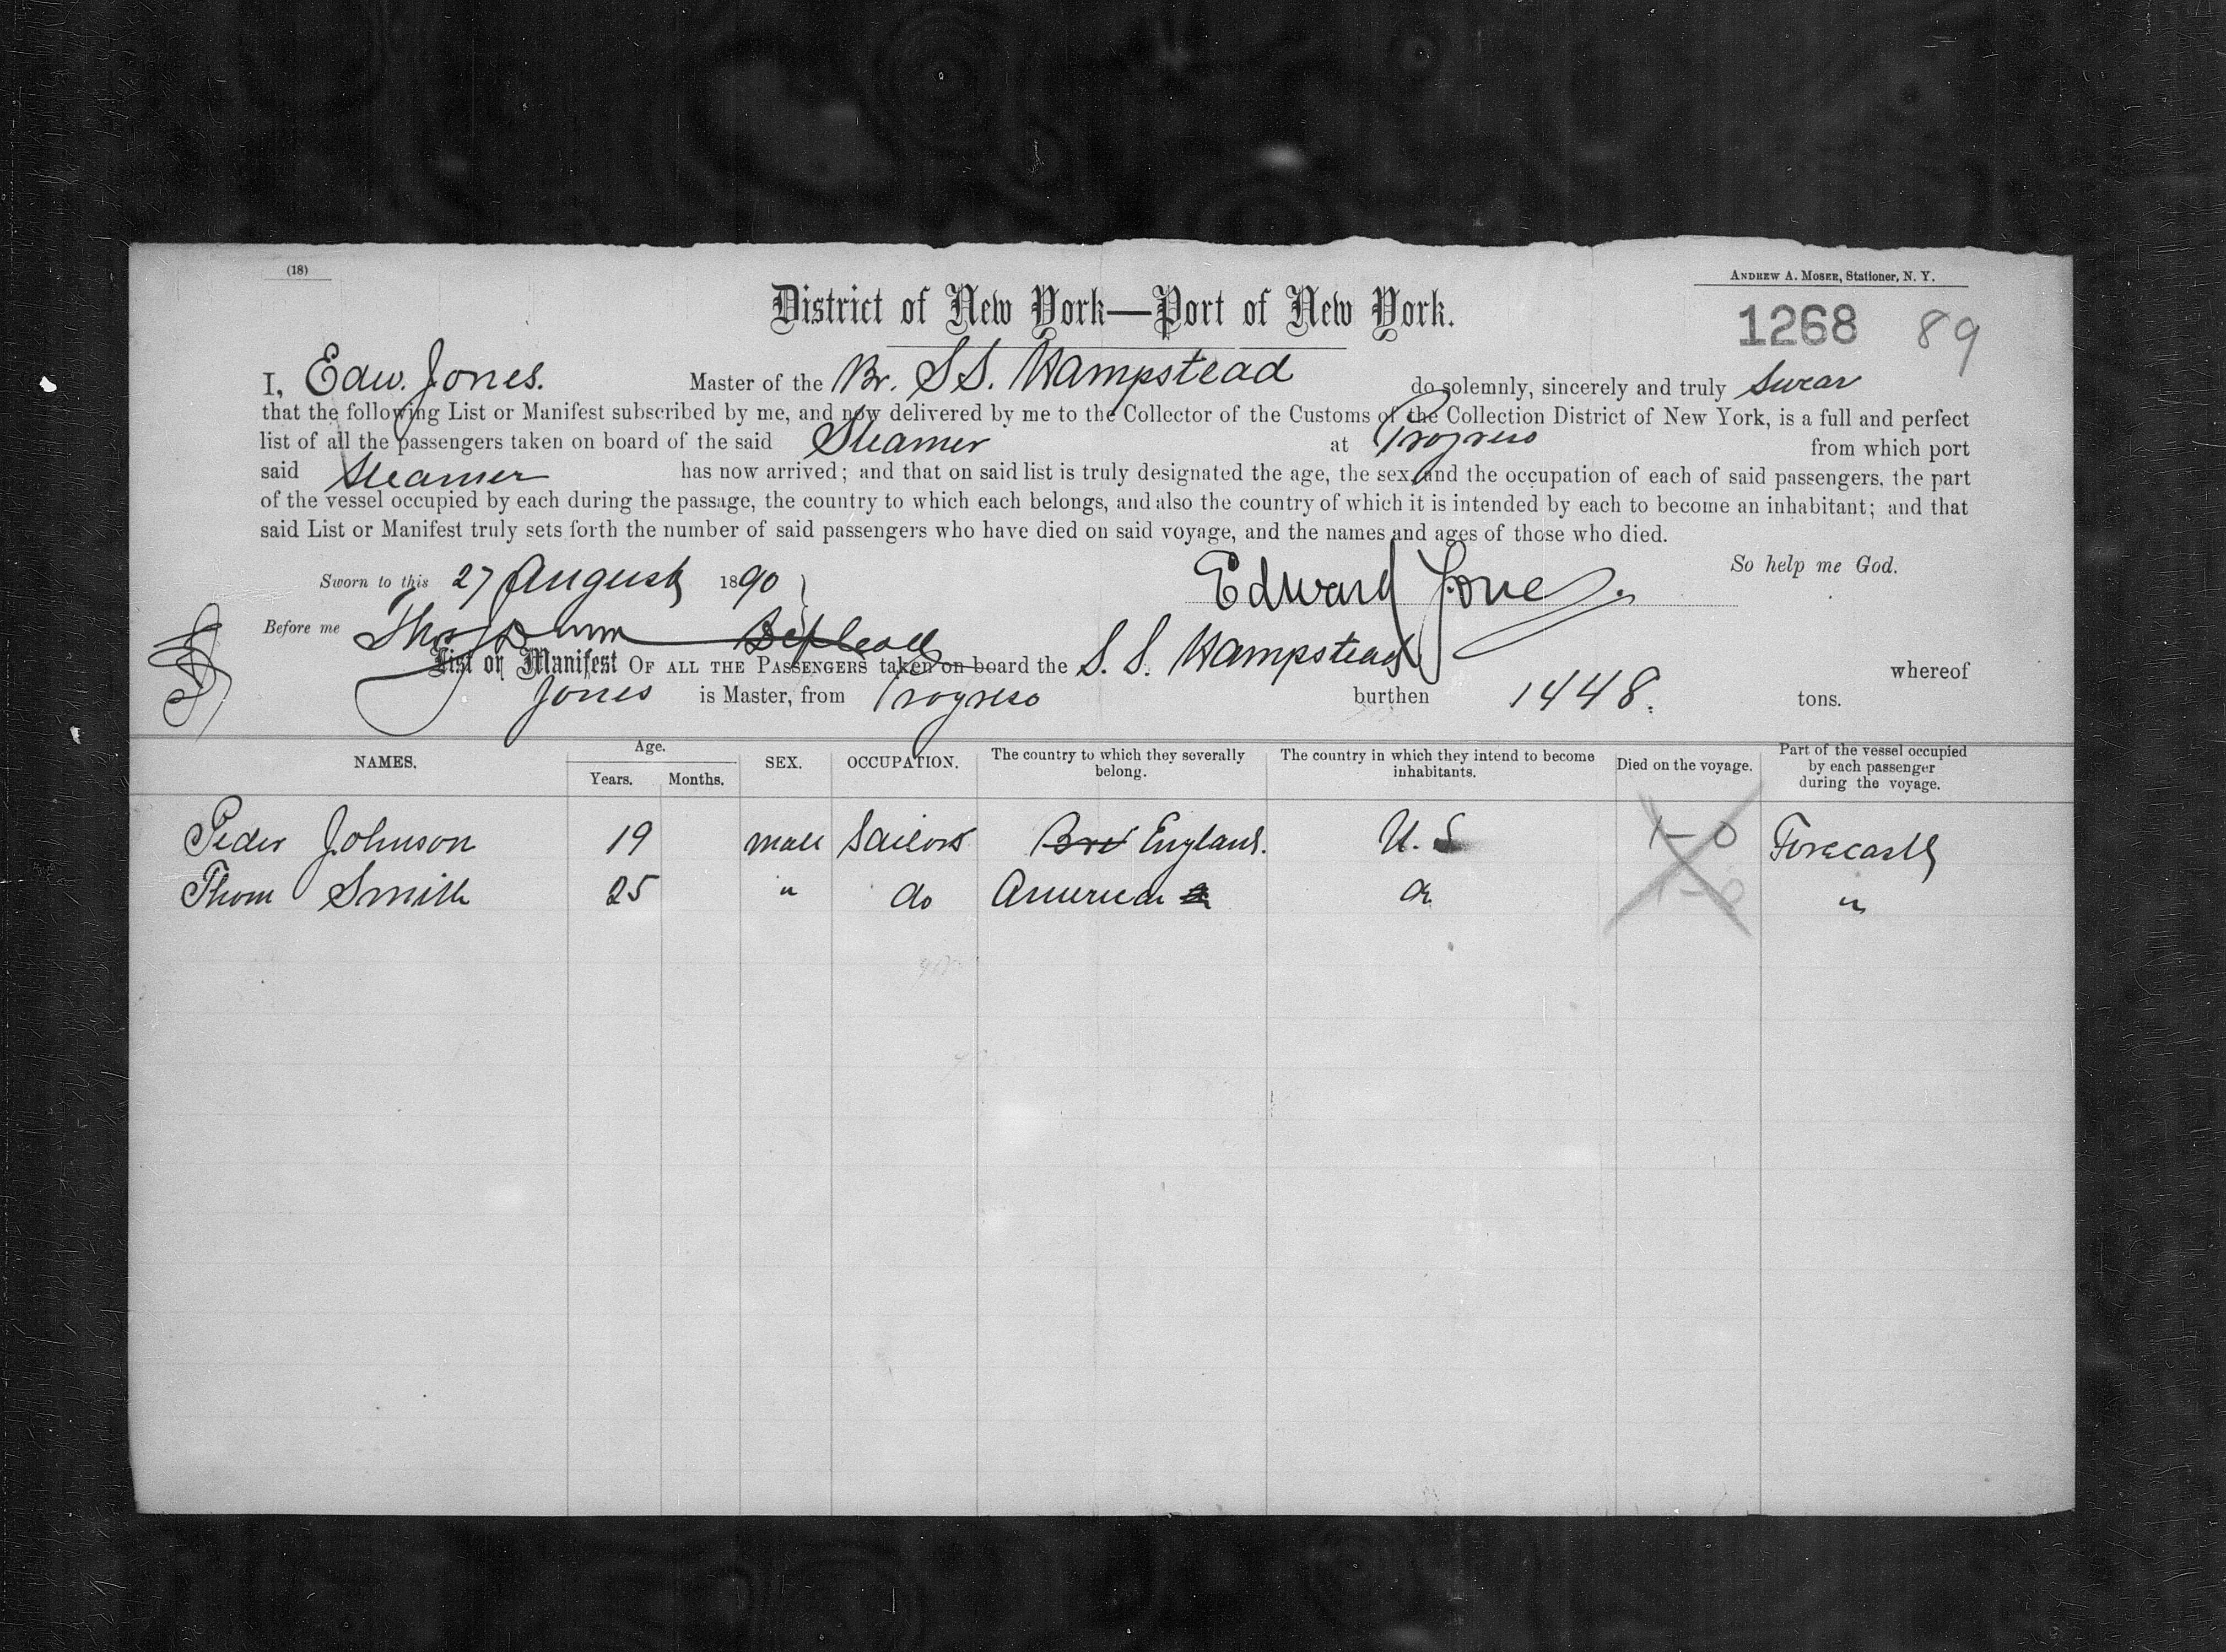 (18)
ANDREW A. MOSER, Stationer, N. Y.
District of New York—Port of New York.
1268 89
I, Edw. Jones. Master of the Br. SS. Hampstead do solemnly, sincerely and truly swear
that the following List or Manifest subscribed by me, and now delivered by me to the Collector of the Customs of the Collection District of New York, is a full and perfect
list of all the passengers taken on board of the said Steamer at Progreso from which port
said Steamer has now arrived; and that on said list is truly designated the age, the sex, and the occupation of each of said passengers, the part
of the vessel occupied by each during the passage, the country to which each belongs, and also the country of which it is intended by each to become an inhabitant; and that
said List or Manifest truly sets forth the number of said passengers who have died on said voyage, and the names and ages of those who died.
So help me God.
Sworn to this 27 August 1890 Edward Jones.
Before me Thos Dunn
List or Manifest OF ALL THE PASSENGERS taken on board the S. S. Hampstead whereof
Jones is Master, from Progreso burthen 1448. tons.
NAMES. Age. Years. Months. SEX. OCCUPATION. The country to which they severally belong. The country in which they intend to become inhabitants. Died on the voyage. Part of the vessel occupied by each passenger during the voyage.
Peder Johnson 19 male Sailors Bri England. U. S 1-0 Forecastle
Thom Smith 25 " do American do 1-0 "